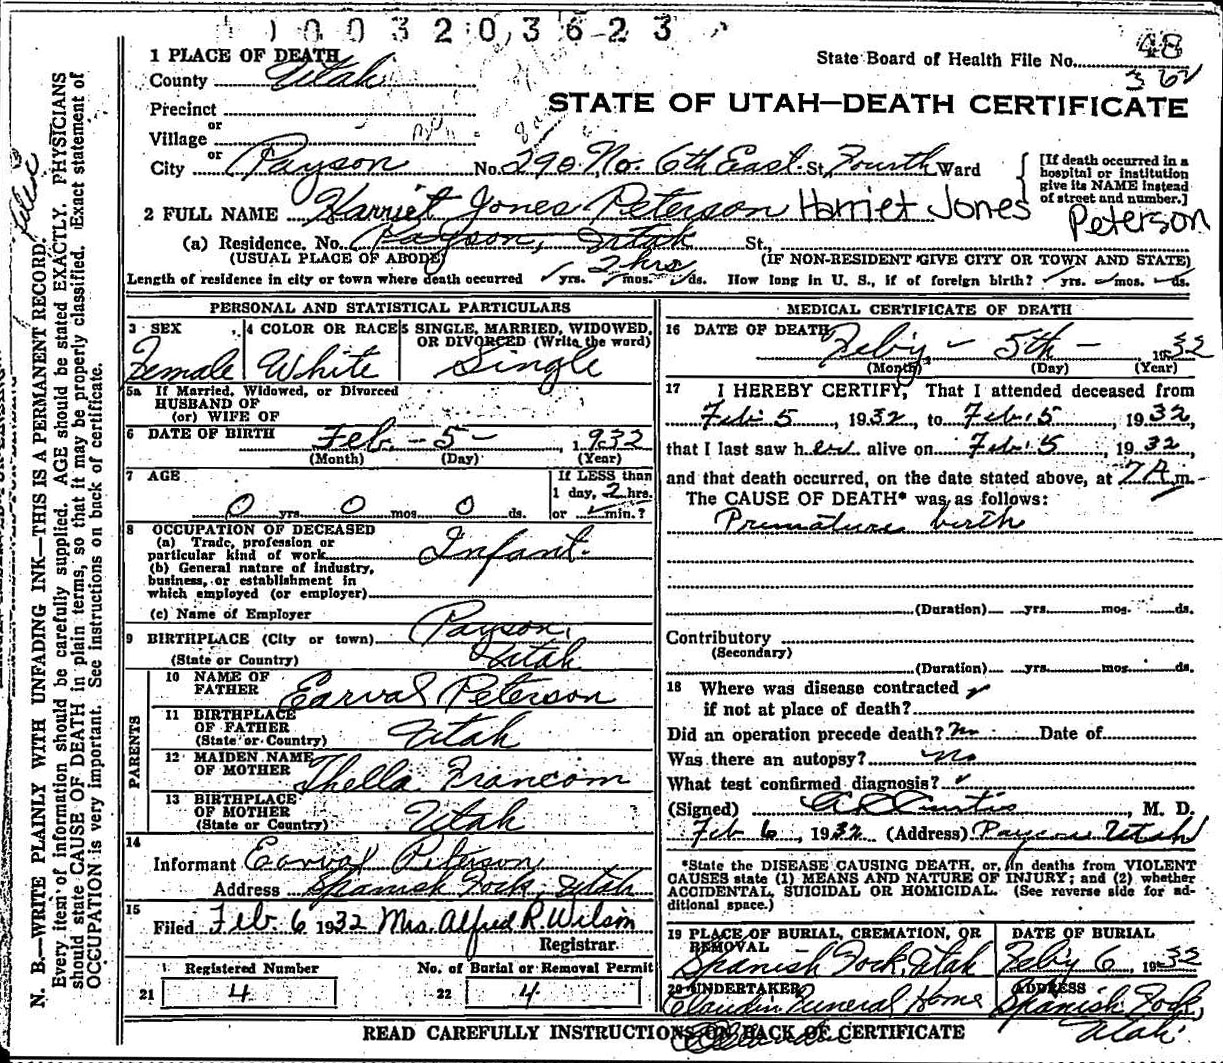 1003203623
1 PLACE OF DEATH
County Utah
State Board of Health File No. 48
362
Precinct
or
Village
STATE OF UTAH—DEATH CERTIFICATE
or
City Payson No. 290 No. 6th East St. Fourth Ward
[If death occurred in a
hospital or institution
give its NAME instead
of street and number.]
2 FULL NAME Harriet Jones Peterson Harriet Jones
Peterson
(a) Residence. No. Payson, Utah St.,
(USUAL PLACE OF ABODE) (IF NON-RESIDENT GIVE CITY OR TOWN AND STATE)
2 hrs
Length of residence in city or town where death occurred yrs. mos. ds. How long in U. S., if of foreign birth? yrs. mos. ds.
PERSONAL AND STATISTICAL PARTICULARS
3 SEX
Female
4 COLOR OR RACE
White
5 SINGLE, MARRIED, WIDOWED,
OR DIVORCED (Write the word)
Single
5a If Married, Widowed, or Divorced
HUSBAND OF
(or) WIFE OF
6 DATE OF BIRTH Feb. - 5 - 1932
(Month) (Day) (Year)
7 AGE
0 yrs. 0 mos. 0 ds.
If LESS than
1 day, 2 hrs.
or min.?
8 OCCUPATION OF DECEASED
(a) Trade, profession or
particular kind of work Infant.
(b) General nature of industry,
business, or establishment in
which employed (or employer)
(c) Name of Employer
9 BIRTHPLACE (City or town) Payson,
(State or Country) Utah
PARENTS
10 NAME OF
FATHER Earval Peterson
11 BIRTHPLACE
OF FATHER
(State or Country) Utah
12 MAIDEN NAME
OF MOTHER Thella Francom
13 BIRTHPLACE
OF MOTHER
(State or Country) Utah
14
Informant Earval Peterson
Address Spanish Fork, Utah
15
Filed Feb. 6 1932 Mrs. Alfred R. Wilson
Registrar.
Registered Number
21 4
No. of Burial or Removal Permit
22 4
MEDICAL CERTIFICATE OF DEATH
16 DATE OF DEATH
Feb'y - 5th - 1932
(Month) (Day) (Year)
17 I HEREBY CERTIFY, That I attended deceased from
Feb. 5, 1932, to Feb. 5, 1932,
that I last saw her alive on Feb. 5, 1932,
and that death occurred, on the date stated above, at 7 A m.
The CAUSE OF DEATH* was as follows:
Premature birth
(Duration) yrs. mos. ds.
Contributory
(Secondary)
(Duration) yrs. mos. ds.
18 Where was disease contracted
if not at place of death?
Did an operation precede death? No Date of
Was there an autopsy? No
What test confirmed diagnosis?
(Signed) A L Curtis, M. D.
Feb 6, 1932 (Address) Payson Utah
*State the DISEASE CAUSING DEATH, or, in deaths from VIOLENT
CAUSES state (1) MEANS AND NATURE OF INJURY; and (2) whether
ACCIDENTAL, SUICIDAL OR HOMICIDAL. (See reverse side for ad-
ditional space.)
19 PLACE OF BURIAL, CREMATION, OR
REMOVAL
Spanish Fork, Utah
DATE OF BURIAL
Feb'y 6, 1932
20 UNDERTAKER
Claudin Funeral Home
ADDRESS
Spanish Fork,
Utah.
READ CAREFULLY INSTRUCTIONS ON BACK OF CERTIFICATE
N. B.—WRITE PLAINLY WITH UNFADING INK—THIS IS A PERMANENT RECORD.
Every item of information should be carefully supplied. AGE should be stated EXACTLY. PHYSICIANS
should state CAUSE OF DEATH in plain terms, so that it may be properly classified. Exact statement of
OCCUPATION is very important. See instructions on back of certificate.